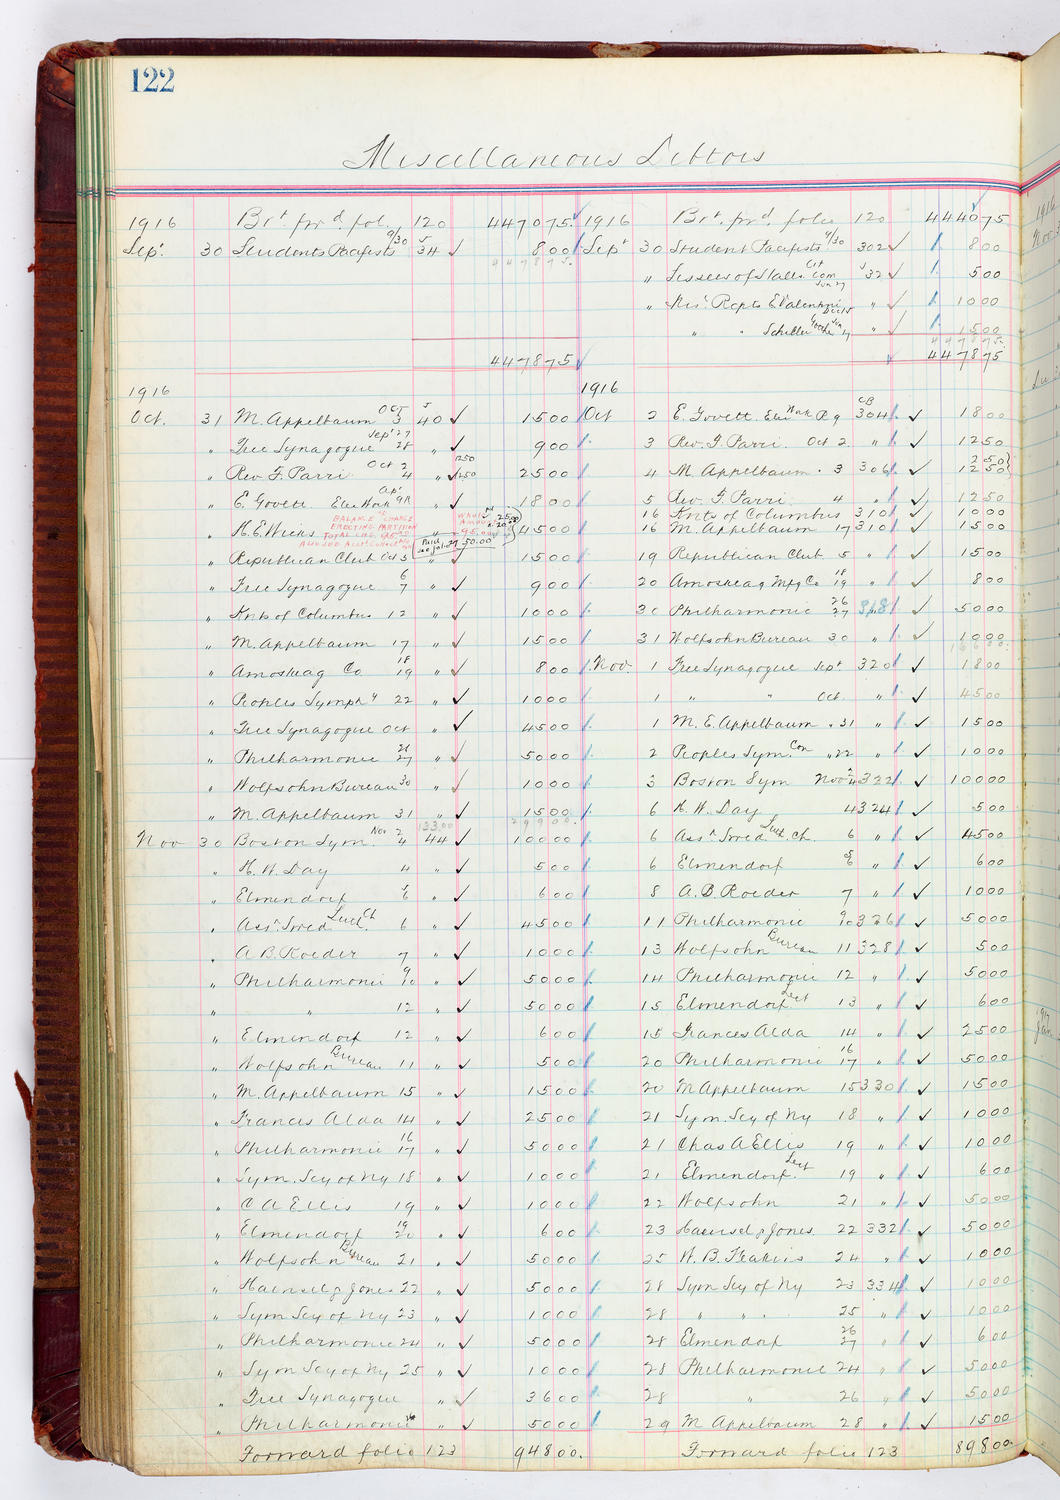 122
Miscellaneous Debtors
1916 Brt. fwd. folio 120 447075 1916 Brt. fwd. folio 120 444075
Sept. 30 Students Pacifists 9/30 34 800 Sept 30 Student Pacifists 9/30 302 800
447875
" Lessees of Stalls Com 32 500
" " 1000
" " Schiller " 1500
447875
447875 447875
1916 1916
Oct. 31 M. Appelbaum Oct 3 40 1500 Oct 2 E. Govett. Elec Work 304 1800
" Free Synagogue Sept 27 28 " 900 3 Rev. F. Parri. Oct 2 " 1250
" Rev F. Parri Oct 2 4 " 1250 1250 2500 4 M. Appelbaum . 3 306 250 1250
" E. Govett Elec Work " 1800 5 Rev. F. Parri 4 " 1250
16 Knts of Columbus 310 1000
BALANCE CHANGE
ERECTING PARTITION
" H. E. Weeks " 4500 16 M. Appelbaum 17 310 1500
Paid 50.00
" Republican Club Oct 5 " 1500 19 Republican Club 5 " 1500
" Free Synagogue 6 7 " 900 20 Amoskeag Mfg Co 18 19 " 800
" Knts of Columbus 12 " 1000 30 Philharmonic 26 27 318 5000
" M. Appelbaum 17 " 1500 31 Wolfsohn Bureau 30 " 1000
" Amoskeag Co 18 19 " 800 Nov. 1 Free Synagogue Sept 320 1800
" Peoples Symphy 22 " 1000 1 " " Oct. " 4500
" Free Synagogue Oct " 4500 1 M. E. Appelbaum . 31 " 1500
" Philharmonic 27 " 5000 2 Peoples Sym. Con " 22 " 1000
" Wolfsohn Bureau 30 " 1000 3 Boston Sym Nov 2 4 322 10000
" M. Appelbaum 31 " 1500 6 H. W. Day 4 324 500
13300 29900
Nov 30 Boston Sym. Nov 2 4 44 10000 6 Assn Swed. Luth. Ch. 6 " 4500
" H. W. Day 4 " 500 6 Elmendorf 5 6 " 600
" Elmendorf 5 6 " 600 8 A. B. Roeder 7 " 1000
" Assn Swed Luth. Ch 6 " 4500 11 Philharmonic 9 10 326 5000
" A B. Roeder 7 " 1000 13 Wolfsohn Bureau 11 328 500
" Philharmonic 9 10 " 5000 14 Philharmonic 12 " 5000
" " 12 " 5000 15 Elmendorf Lect 13 " 600
" Elmendorf 12 " 600 15 Frances Alda 14 " 2500
" Wolfsohn Bureau 11 " 500 20 Philharmonic 16 17 " 5000
" M. Appelbaum 15 " 1500 20 M Appelbaum 15 330 1500
" Frances Alda 14 " 2500 21 Sym. Scy of Ny 18 " 1000
" Philharmonic 16 17 " 5000 21 Chas A Ellis 19 " 1000
" Sym. Scy of Ny 18 " 1000 21 Elmendorf Lect 19 " 600
" C A Ellis 19 " 1000 22 Wolfsohn 21 " 5000
" Elmendorf 19 20 " 600 23 Haensel & Jones. 22 332 5000
" Wolfsohn Bureau 21 " 5000 25 W. B. Feakins 24 " 1000
" Haensel & Jones 22 " 5000 28 Sym Scy of Ny 23 334 1000
" Sym Scy of Ny 23 " 1000 28 " " " 25 " 1000
" Philharmonic 24 " 5000 28 Elmendorf 26 27 " 600
" Sym Scy of Ny 25 " 1000 28 Philharmonic 24 " 5000
" Free Synagogue " 3600 28 " 26 " 5000
" Philharmonic " 5000 29 M Appelbaum 28 " 1500
Forward folio 123 94800. Forward folio 123 89800